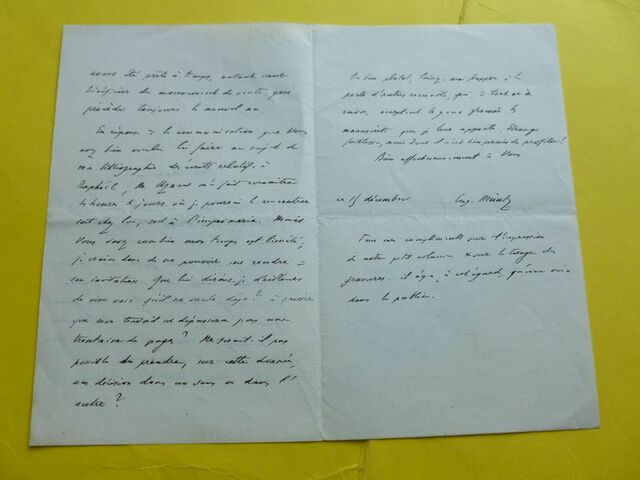 avons été prêts à temps, autant vaut
bénéficier du mouvement de vente qui
précède toujours le nouvel an.
En réponse à la communication que vous
avez bien voulu lui faire au sujet de
ma bibliographie des écrits relatifs à
Raphaël, M. m'a fait connaître
les heures & jours où je pourrai le rencontrer
soit chez lui, soit à l'imprimerie. Mais
vous savez combien mon temps est limité;
je crains donc de ne pouvoir me rendre à
son invitation. Que lui dirais-je d'ailleurs
de vive voix qu'il ne sache déjà? à savoir
que mon travail ne dépassera pas une
trentaine de pages? Ne serait-il pas
possible de prendre, sur cette donnée,
une décision dans un sens ou dans l'
autre?
Ou bien plutôt, laissez-moi frapper à la
porte d'autres recueils, qui, à tort ou à
raison, acceptent les yeux fermés les
manuscrits que je leur apporte. Étrange
faiblesse, mais dont il est bien permis de profiter!
Bien affectueusement à vous
ce 15 décembre Eug. Müntz
Tous mes compliments sur l'impression
de notre petit volume & sur le tirage des
gravures. Il n'y a, à cet égard, qu'une voix
dans le public.